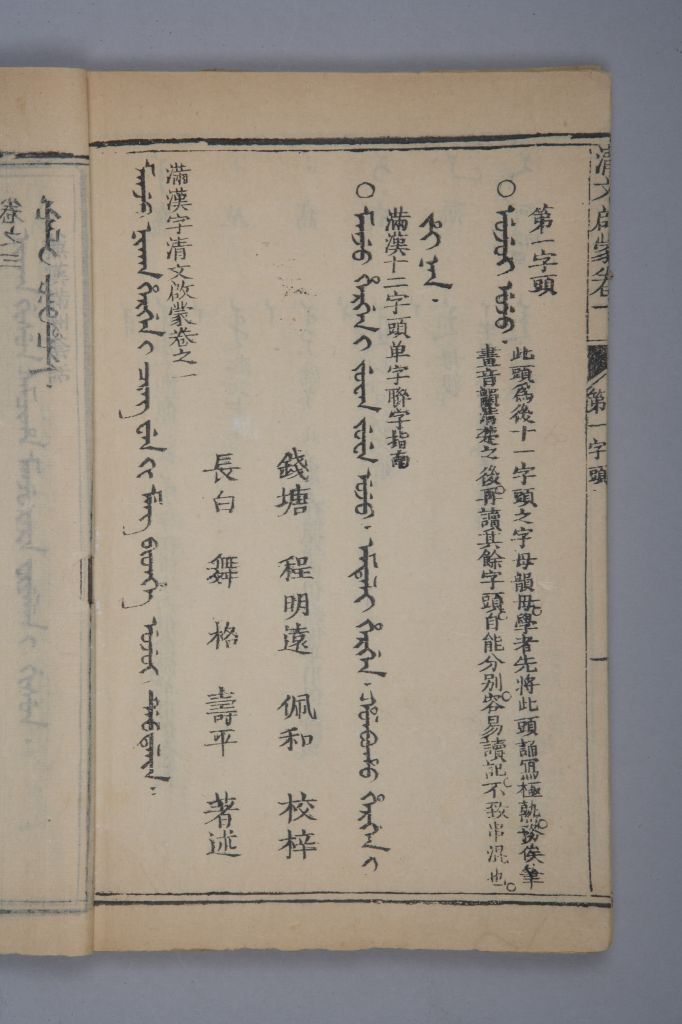 ᠮᠠᠨᠵᡠ ᠨᡳᡴᠠᠨ ᡥᡝᡵᡤᡝᠨ ᡳ
滿漢字清文啟蒙卷之一
長白 舞格 壽平 著述
錢塘 程明遠 佩和 校梓
○ ᠮᠠᠨᠵᡠ ᡥᡝᡵᡤᡝᠨ ᡳ ᠵᡠᠸᠠᠨ ᠵᡠᠸᡝ ᡠᠵᡠ᠈ ᡝᠮᡨᡝᠯᡳ ᡥᡝᡵᡤᡝᠨ᠈ ᡥᠣᠯᠪᠣᡥᠣ ᡥᡝᡵᡤᡝᠨ ᡳ
滿漢十二字頭單字聯字指南
第一字頭
此頭爲後十一字頭之字母韻母。學者先將此頭誦寫極熟。務俟筆
畫音韻清楚之後。再讀其餘字頭。自能分別。容易讀記。不致串混也。
清文啟蒙卷一
第一字頭
卷之三